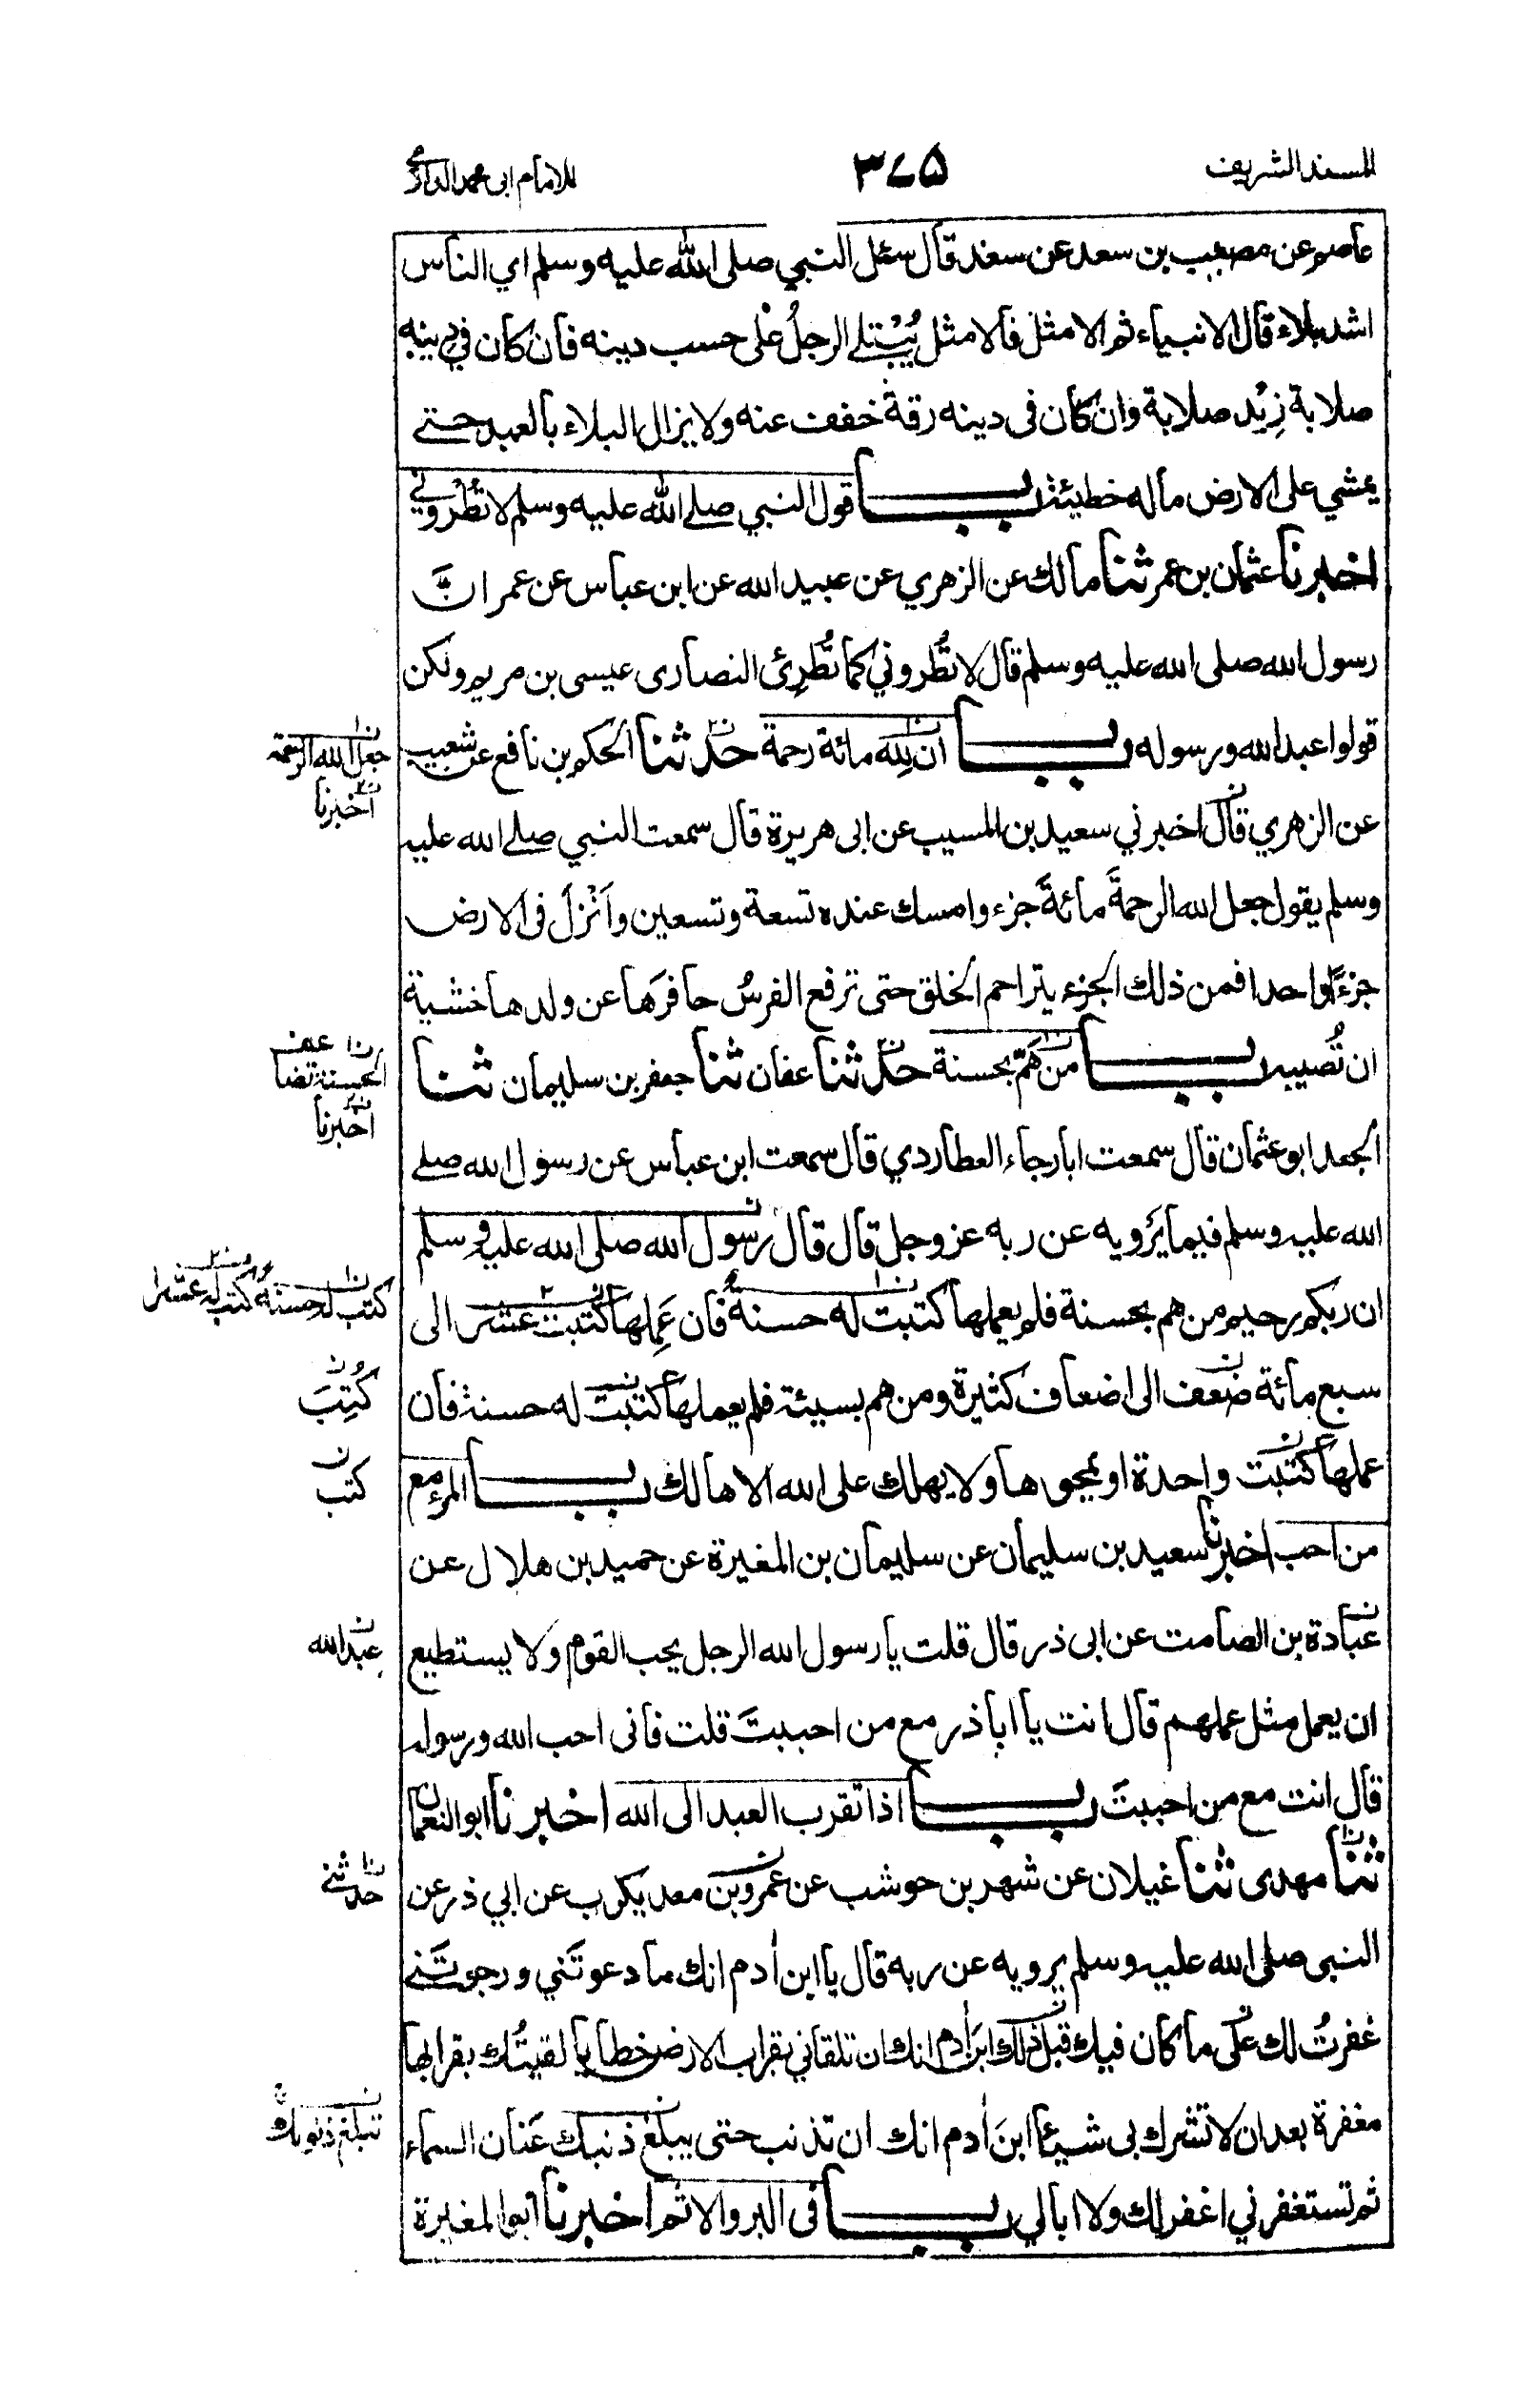 المسند الشريف
٣٧٥
للامام ابي محمد الدارمي
عاصم عن مصعب بن سعد عن سعد قال سئل النبي صلى الله عليه وسلم اي الناس
اشد بلاء قال الانبياء ثم الامثل فالامثل يُبْتلى الرجلُ على حسب دينه فان كان في دينه
صلابة زِيْد صلابة وان كان فى دينه رقةٌ خفف عنه ولا يزال البلاء بالعبد حتى
يمشي على الارض ماله خطيئة باب قول النبي صلى الله عليه وسلم لا تُطْروني
اخبرنا عثمان بن عمر ثنا مالك عن الزهري عن عبيد الله عن ابن عباس عن عمر انَّ
رسول الله صلى الله عليه وسلم قال لا تُطْروني كما تُطْرِئ النصارى عيسى بن مريم ولكن
قولوا عبد الله ورسوله باب ان لِلّه مائة رحمة حدثنا الحكم بن نافع عن شعيب
جعل الله الرحمة
اخبرنا
عن الزهري قال اخبرني سعيد بن المسيب عن ابى هريرة قال سمعت النبي صلى الله عليه
وسلم يقول جعل الله الرحمةَ مائةَ جزء وامسك عنده تسعة وتسعين واَنْزلَ فى الارض
جزءًا واحدا فمن ذلك الجزء يتراحم الخلق حتى ترفع الفرسُ حافرَها عن ولدها خشية
ان تُصيبه باب من هَمّ بحسنة حدثنا عفان ثنا جعفر بن سليمان ثنا
الحسنة تضاعف
اخبرنا
الجعد ابو عثمان قال سمعت ابا رجاء العطاردي قال سمعت ابن عباس عن رسول الله صلى
الله عليه وسلم فيما يَرْويه عن ربه عز وجل قال قال رسول الله صلى الله عليه وسلم
ان ربكم رحيم من هم بحسنة فلم يعملها كتبت له حسنةٌ فان عَمِلها كتبت عشر الى
كتب له حسنةٌ و كتب له عشرا
سبع مائة ضعف الى اضعاف كثيرة ومن هم بسيئة فلم يعملها كتبت له حسنة فان
كُتِبَ
عملها كتبت واحدة او يمحوها ولا يهلك على الله الا هالك باب المرء مع
كتب
من احب اخبرنا سعيد بن سليمان عن سليمان بن المغيرة عن حميد بن هلال عن
عبادة بن الصامت عن ابى ذر قال قلت يا رسول الله الرجل يحب القوم ولا يستطيع
عبد الله
ان يعمل مثل عملهم قال انت يا ابا ذر مع من احببتَ قلت فانى احب الله ورسوله
قال انت مع من احببتَ باب اذا تقرب العبد الى الله اخبرنا ابو النعمان
ثنا مهدى ثنا غيلان عن شهر بن حوشب عن عمرو بن معد يكرب عن ابي ذر عن
حدثني
النبى صلى الله عليه وسلم يرويه عن ربه قال يا ابن اٰدم انك ما دعوتَني ورجوتَني
غفرتُ لك على ما كان فيك قبل ذلك ابنَ اٰدم انك ان تلقاني بقراب الارض خطايا لقيتُك بقرابها
مغفرة بعد ان لا تشرك بى شيئا ابنَ اٰدم انك ان تذنب حتى يبلغ ذنبك عَنَان السماء
تبلغ ذنوبك
ثم تستغفرني اغفر لك ولا ابالي باب فى البر والاثم اخبرنا ابو المغيرة